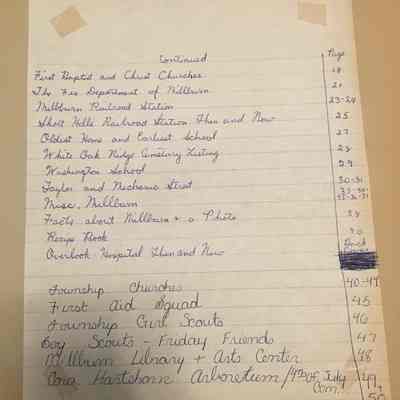 Continued Page
First Baptist and Christ Churches 18
The Fire Department of Millburn 21
Millburn Railroad Station 23-24
Short Hills Railroad Station Then and Now 25
Oldest Home and Earliest School 27
White Oak Ridge Cemetary Listing 28
Washington School 29
Taylor and Mechanic Street 30-31
Misc. Millburn
Facts about Millburn + a Photo
Recipe Book
Overlook Hospital Then and Now Back
Township Churches 40-44
First Aid Squad 45
Township Girl Scouts 46
Boy Scouts - Friday Friends 47
Millburn Library + Arts Center 48
Cora Hartshorn Arboretum / 4th of July Com. 49,
50